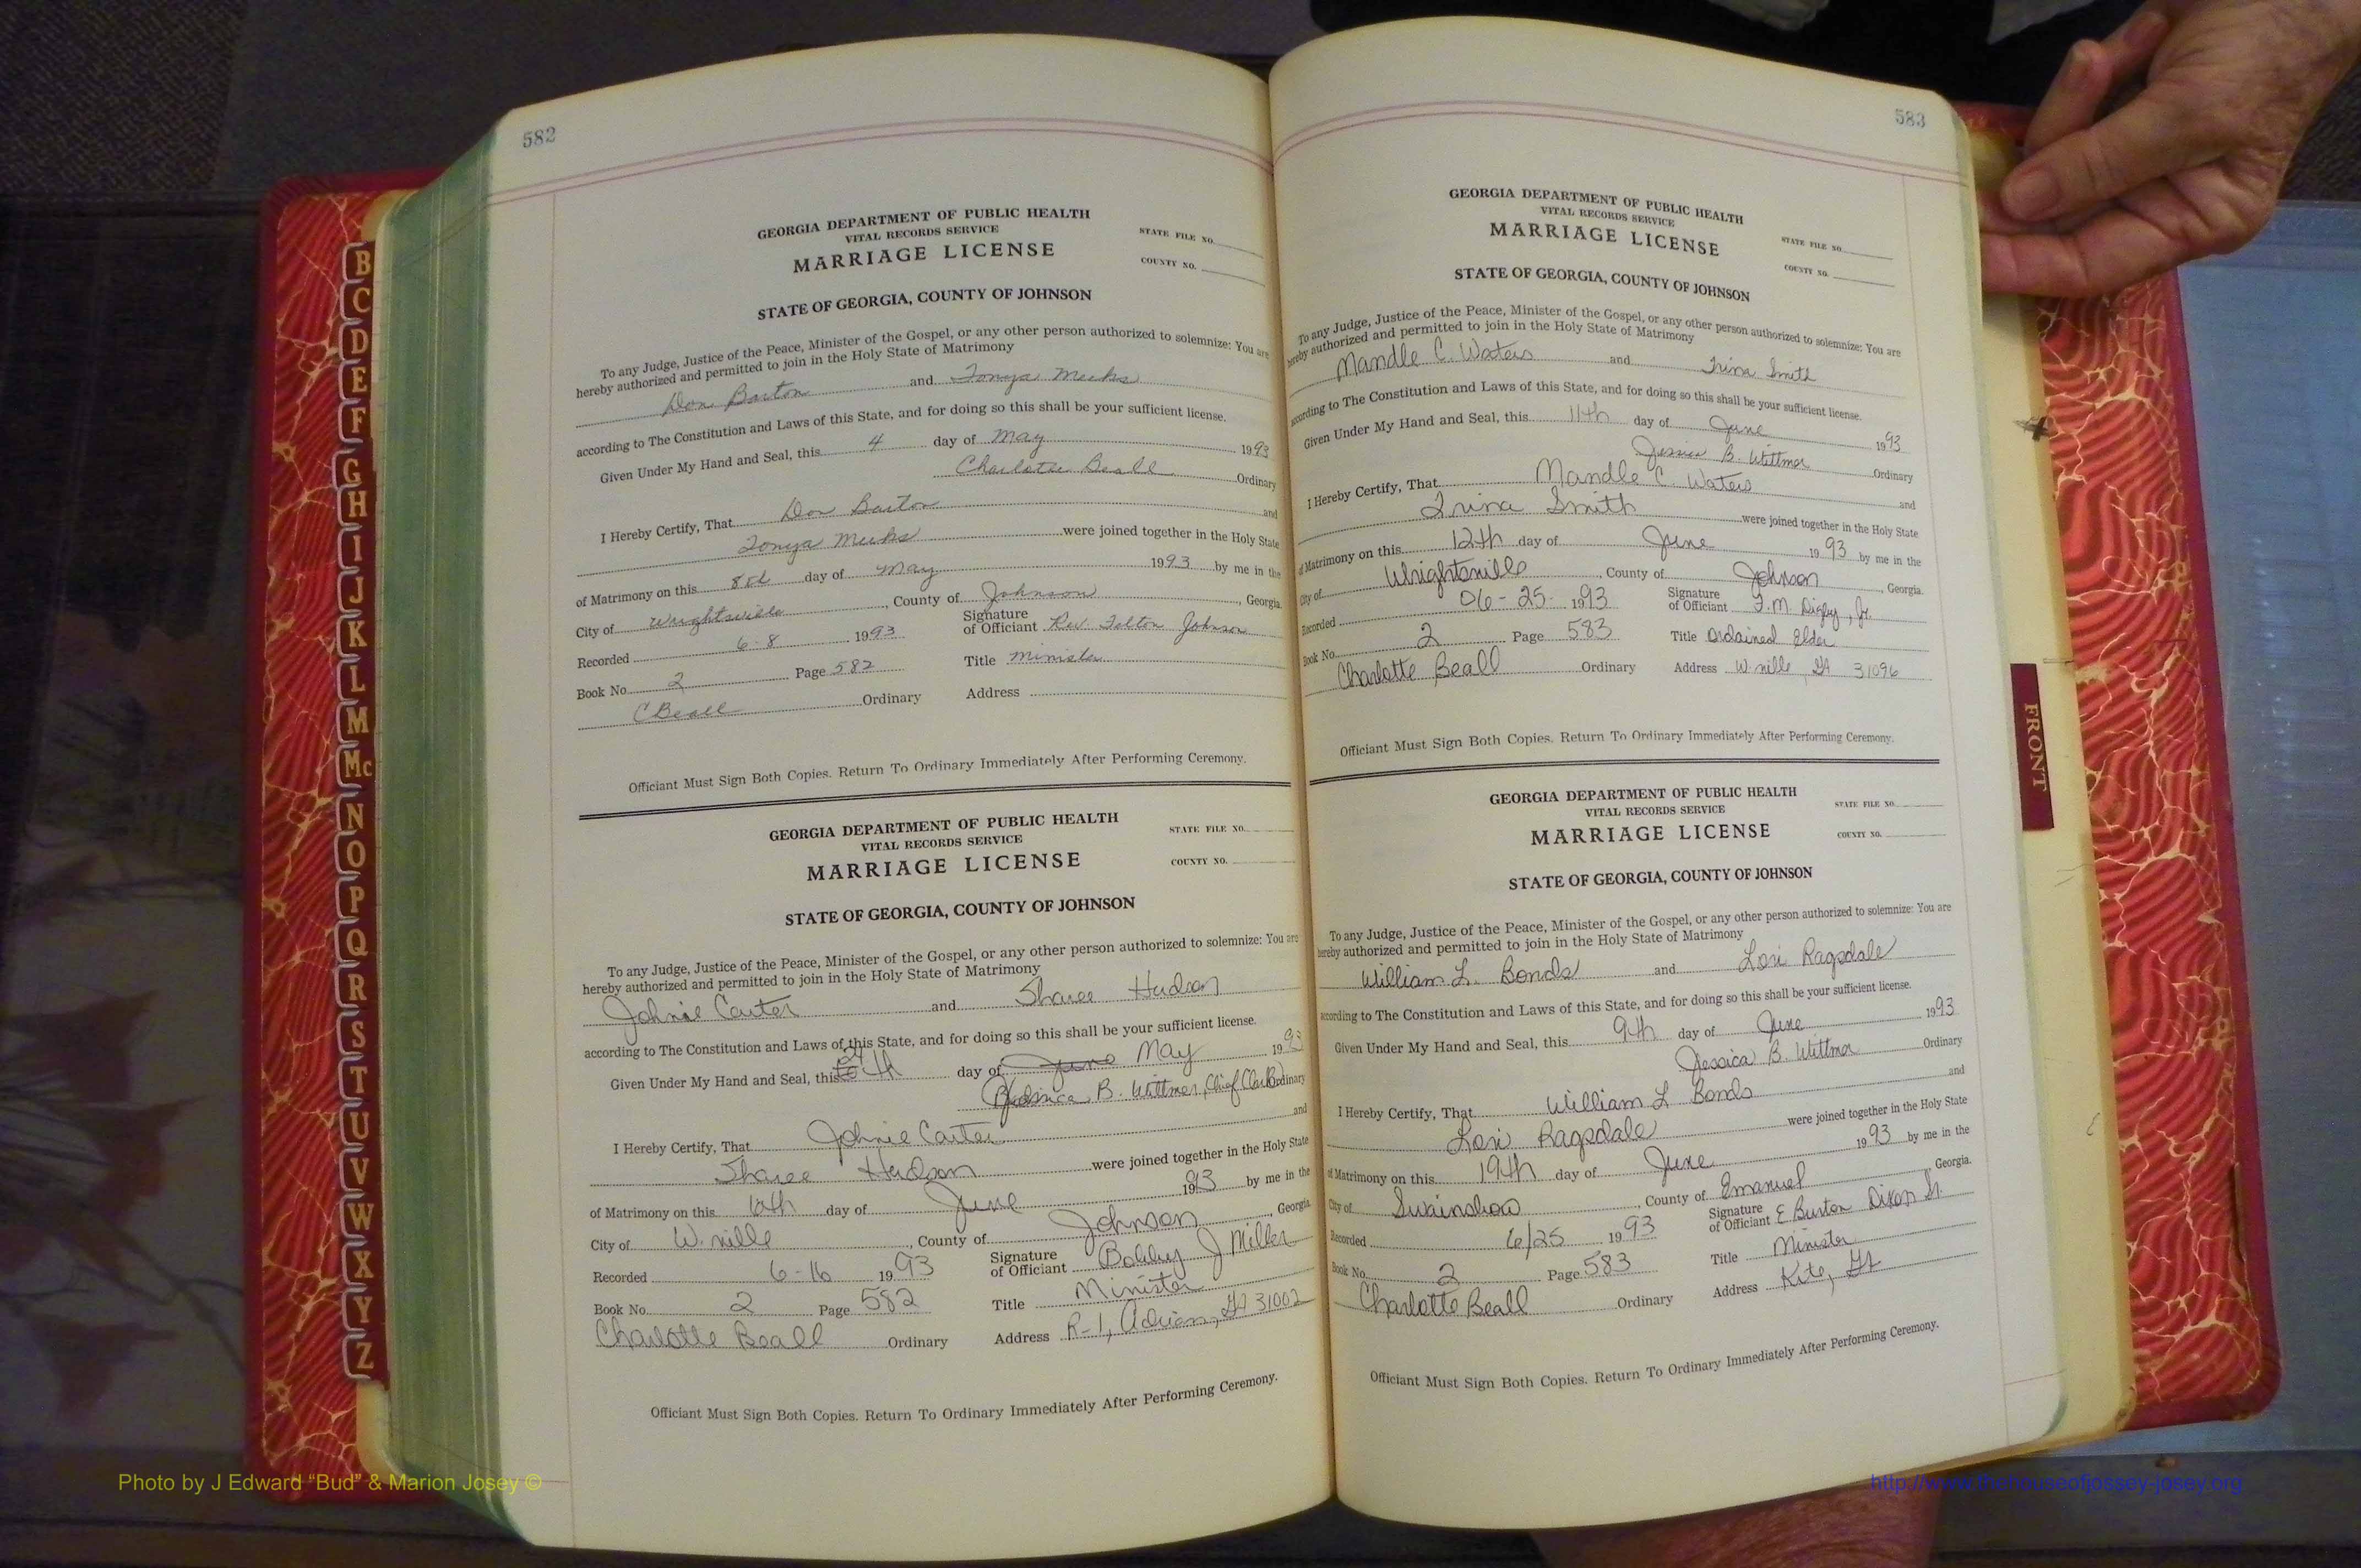 582
GEORGIA DEPARTMENT OF PUBLIC HEALTH
VITAL RECORDS SERVICE
MARRIAGE LICENSE
STATE FILE NO.
COUNTY NO.
STATE OF GEORGIA, COUNTY OF JOHNSON
To any Judge, Justice of the Peace, Minister of the Gospel, or any other person authorized to solemnize: You are
hereby authorized and permitted to join in the Holy State of Matrimony
Don Barton and Tonya Meeks
according to The Constitution and Laws of this State, and for doing so this shall be your sufficient license.
Given Under My Hand and Seal, this 4 day of May 1993
Charlotte Beall Ordinary
I Hereby Certify, That Don Barton and
Tonya Meeks were joined together in the Holy State
of Matrimony on this day of May 1993 by me in the
City of Wrightsville, County of Johnson, Georgia
Recorded 6-8 1993 Signature of Officiant Rev Johnson
Book No. 2 Page 582 Title Minister
C Beall Ordinary Address
Officiant Must Sign Both Copies. Return To Ordinary Immediately After Performing Ceremony.
GEORGIA DEPARTMENT OF PUBLIC HEALTH
VITAL RECORDS SERVICE
MARRIAGE LICENSE
STATE FILE NO.
COUNTY NO.
STATE OF GEORGIA, COUNTY OF JOHNSON
To any Judge, Justice of the Peace, Minister of the Gospel, or any other person authorized to solemnize: You are
hereby authorized and permitted to join in the Holy State of Matrimony
Johnie Carter and Sharee Hudson
according to The Constitution and Laws of this State, and for doing so this shall be your sufficient license.
Given Under My Hand and Seal, this day of June May 1993
B. Wittmer, Chief Clerk Ordinary
I Hereby Certify, That Johnie Carter and
Sharee Hudson were joined together in the Holy State
of Matrimony on this day of June 1993 by me in the
City of W.ville, County of Johnson, Georgia
Recorded 6-16 1993 Signature of Officiant Bobby J Miller
Book No. 2 Page 582 Title Minister
Charlotte Beall Ordinary Address R-1, Adrian, GA 31002
Officiant Must Sign Both Copies. Return To Ordinary Immediately After Performing Ceremony.
583
GEORGIA DEPARTMENT OF PUBLIC HEALTH
VITAL RECORDS SERVICE
MARRIAGE LICENSE
STATE FILE NO.
COUNTY NO.
STATE OF GEORGIA, COUNTY OF JOHNSON
To any Judge, Justice of the Peace, Minister of the Gospel, or any other person authorized to solemnize: You are
hereby authorized and permitted to join in the Holy State of Matrimony
Mandle C. Waters and Trina Smith
according to The Constitution and Laws of this State, and for doing so this shall be your sufficient license.
Given Under My Hand and Seal, this 11th day of June 1993
Jessica B. Wittmer Ordinary
I Hereby Certify, That Mandle C. Waters and
Trina Smith were joined together in the Holy State
of Matrimony on this 12th day of June 1993 by me in the
City of Wrightsville, County of Johnson, Georgia.
Recorded 06-25- 1993 Signature of Officiant F.M. Digby, Jr.
Book No. 2 Page 583 Title Ordained Elder
Charlotte Beall Ordinary Address W.ville, GA 31096
Officiant Must Sign Both Copies. Return To Ordinary Immediately After Performing Ceremony.
GEORGIA DEPARTMENT OF PUBLIC HEALTH
VITAL RECORDS SERVICE
MARRIAGE LICENSE
STATE FILE NO.
COUNTY NO.
STATE OF GEORGIA, COUNTY OF JOHNSON
To any Judge, Justice of the Peace, Minister of the Gospel, or any other person authorized to solemnize: You are
hereby authorized and permitted to join in the Holy State of Matrimony
William L. Bonds and Lori Ragsdale
according to The Constitution and Laws of this State, and for doing so this shall be your sufficient license.
Given Under My Hand and Seal, this 9th day of June 1993
Jessica B. Wittmer Ordinary
I Hereby Certify, That William L Bonds and
Lori Ragsdale were joined together in the Holy State
of Matrimony on this 19th day of June 1993 by me in the
City of Swainsboro, County of Emanuel, Georgia.
Recorded 6/25 1993 Signature of Officiant E Burton Dixon Sr.
Book No. 2 Page 583 Title Minister
Charlotte Beall Ordinary Address Kite, GA
Officiant Must Sign Both Copies. Return To Ordinary Immediately After Performing Ceremony.
B
C
D
E
F
G
H
I
J
K
L
M
Mc
N
O
P
Q
R
S
T
U
V
W
X
Y
Z
FRONT
Photo by J Edward “Bud” & Marion Josey ©
http://www.thehouseofjossey-josey.org